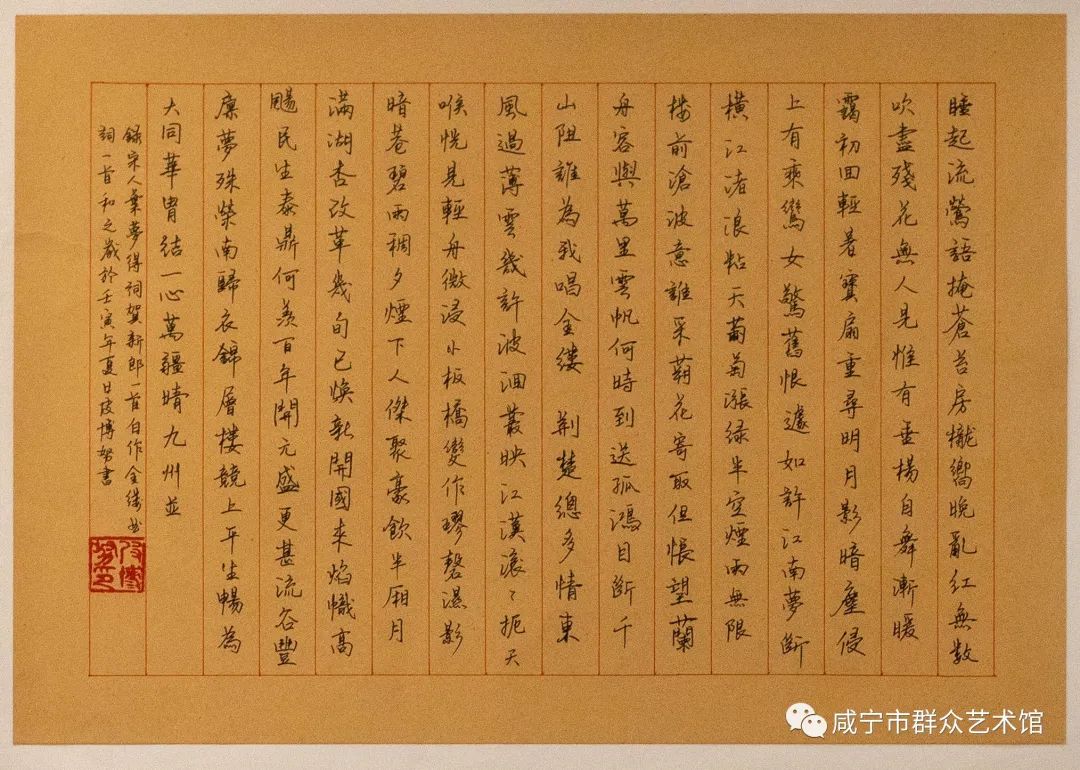 睡起流鶯語掩蒼苔房櫳嚮晚亂紅無數
吹盡殘花無人見惟有垂楊自舞漸暖
靄初回輕暑寶扇重尋明月影暗塵侵
上有乘鸞女驚舊恨遽如許江南夢斷
橫江渚浪粘天葡萄漲綠半空煙雨無限
樓前滄波意誰采蘋花寄取但悵望蘭
舟容與萬里雲帆何時到送孤鴻目斷千
山阻誰為我唱金縷 荆楚總多情東
風過薄雲幾許波涸叢映江漢滾々扼天
喉恍見輕舟微浸小板橋變作璆磬濕影
暗巷碧雨稠夕煙下人傑聚豪飲半廂月
滿湖杏改革幾旬已煥新開國來焰幟高
颺民生泰鼎何羨百年開元盛更甚流谷豐
廪夢殊榮南歸衣錦層樓競上平生暢為
大同華胄結一心萬疆晴九州並
錄宋人葉夢得詞賀新郎一首自作金縷
詞一首和之歲於壬寅年夏日 博努書
咸宁市群众艺术馆